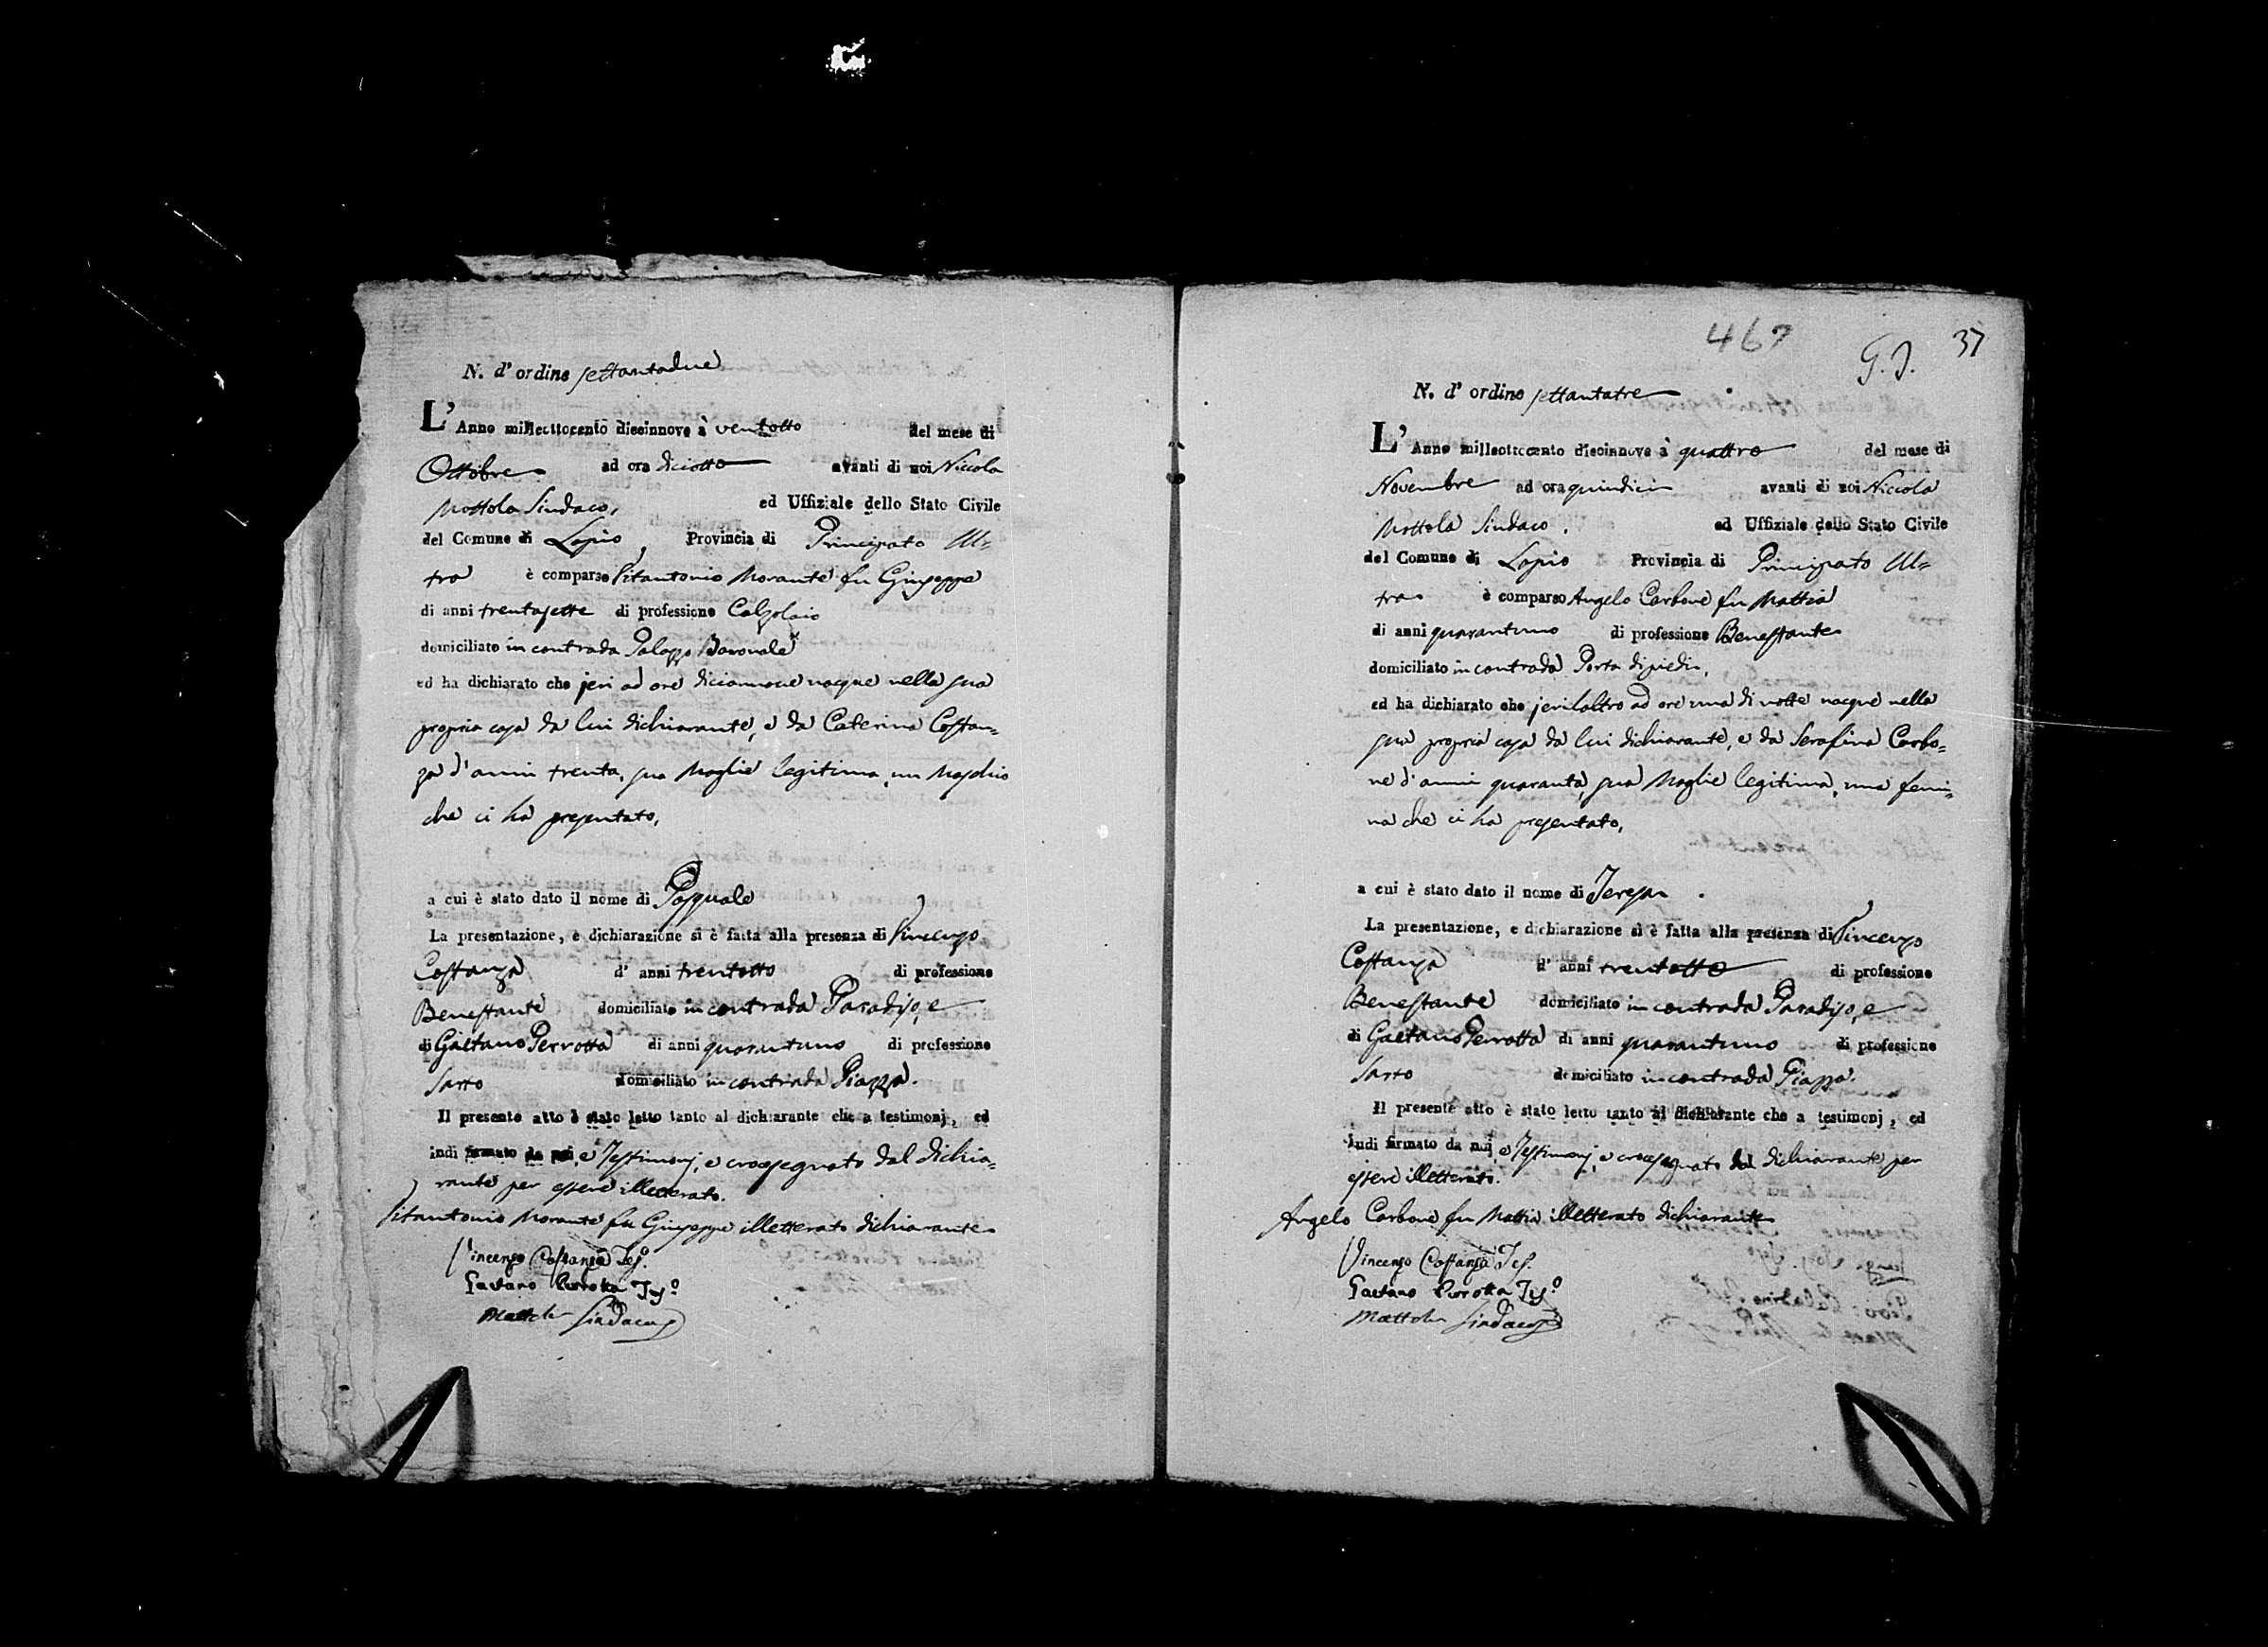 N. d' ordine settantadue
L' Anno milleottocento diecinnove à ventotto del mese di
Ottobre ad ora diciotto avanti di noi Niccola
Mottola Sindaco, ed Uffiziale dello Stato Civile
del Comune di Lapio, Provincia di Principato Ul=
tra è comparso Vitantonio Morante fu Giuseppe
di anni trentasette di professione Calzolaio
domiciliato in contrada Palazzo Baronale
ed ha dichiarato che jeri ad ore diciannove nacque nella sua
propria casa da lui dichiarante, e da Caterina Costan=
za d'anni trenta, sua Moglie legitima, un Maschio
che ci ha presentato,
a cui è stato dato il nome di Pasquale
La presentazione, e dichiarazione si è fatta alla presenza di Vincenzo
Costanza d' anni trentotto di professione
Benestante domiciliato in contrada Paradiso, e
di Gaetano Perrotta di anni quarantuno di professione
Sarto domiciliato in contrada Piazza.
Il presente atto è stato letto tanto al dichiarante che a testimonj, ed
indi firmato da noi, e Testimonj, e crocesegnato dal dichia=
rante per essere illetterato.
Vitantonio Morante fu Giuseppe illetterato dichiarante
Vincenzo Costanza Tes.
Gaetano Perrotta Tes.o
Mottola Sindaco
467
G. J. 37
N. d' ordine settantatre
L' Anno milleottocento diecinnove à quattro del mese di
Novembre ad ora quindici avanti di noi Niccola
Mottola Sindaco. ed Uffiziale dello Stato Civile
del Comune di Lapio Provincia di Principato Ul=
tra è comparso Angelo Carbone fu Mattia
di anni quarantuno di professione Benestante
domiciliato in contrada Porta di piedi,
ed ha dichiarato che jerilaltro ad ore una di notte nacque nella
sua propria casa da lui dichiarante, e da Serafina Carbo=
ne d'anni quaranta, sua Moglie legitima, una femi=
na che ci ha presentato,
a cui è stato dato il nome di Teresa.
La presentazione, e dichiarazione si è fatta alla presenza di Vincenzo
Costanza d' anni trentotto di professione
Benestante domiciliato in contrada Paradiso, e
di Gaetano Perrotta di anni quarantuno di professione
Sarto domiciliato in contrada Piazza.
Il presente atto è stato letto tanto al dichiarante che a testimonj, ed
indi firmato da noi, e Testimonj, e crocesegnato dal dichiarante per
essere illetterato.
Angelo Carbone fu Mattia illetterato dichiarante
Vincenzo Costanza Tes.
Gaetano Perrotta Tes.o
Mottola Sindaco